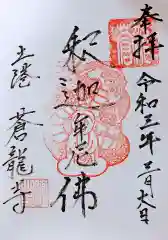 奉拝
令和三年三月六日
釈迦牟尼佛
土澤
蒼龍寺